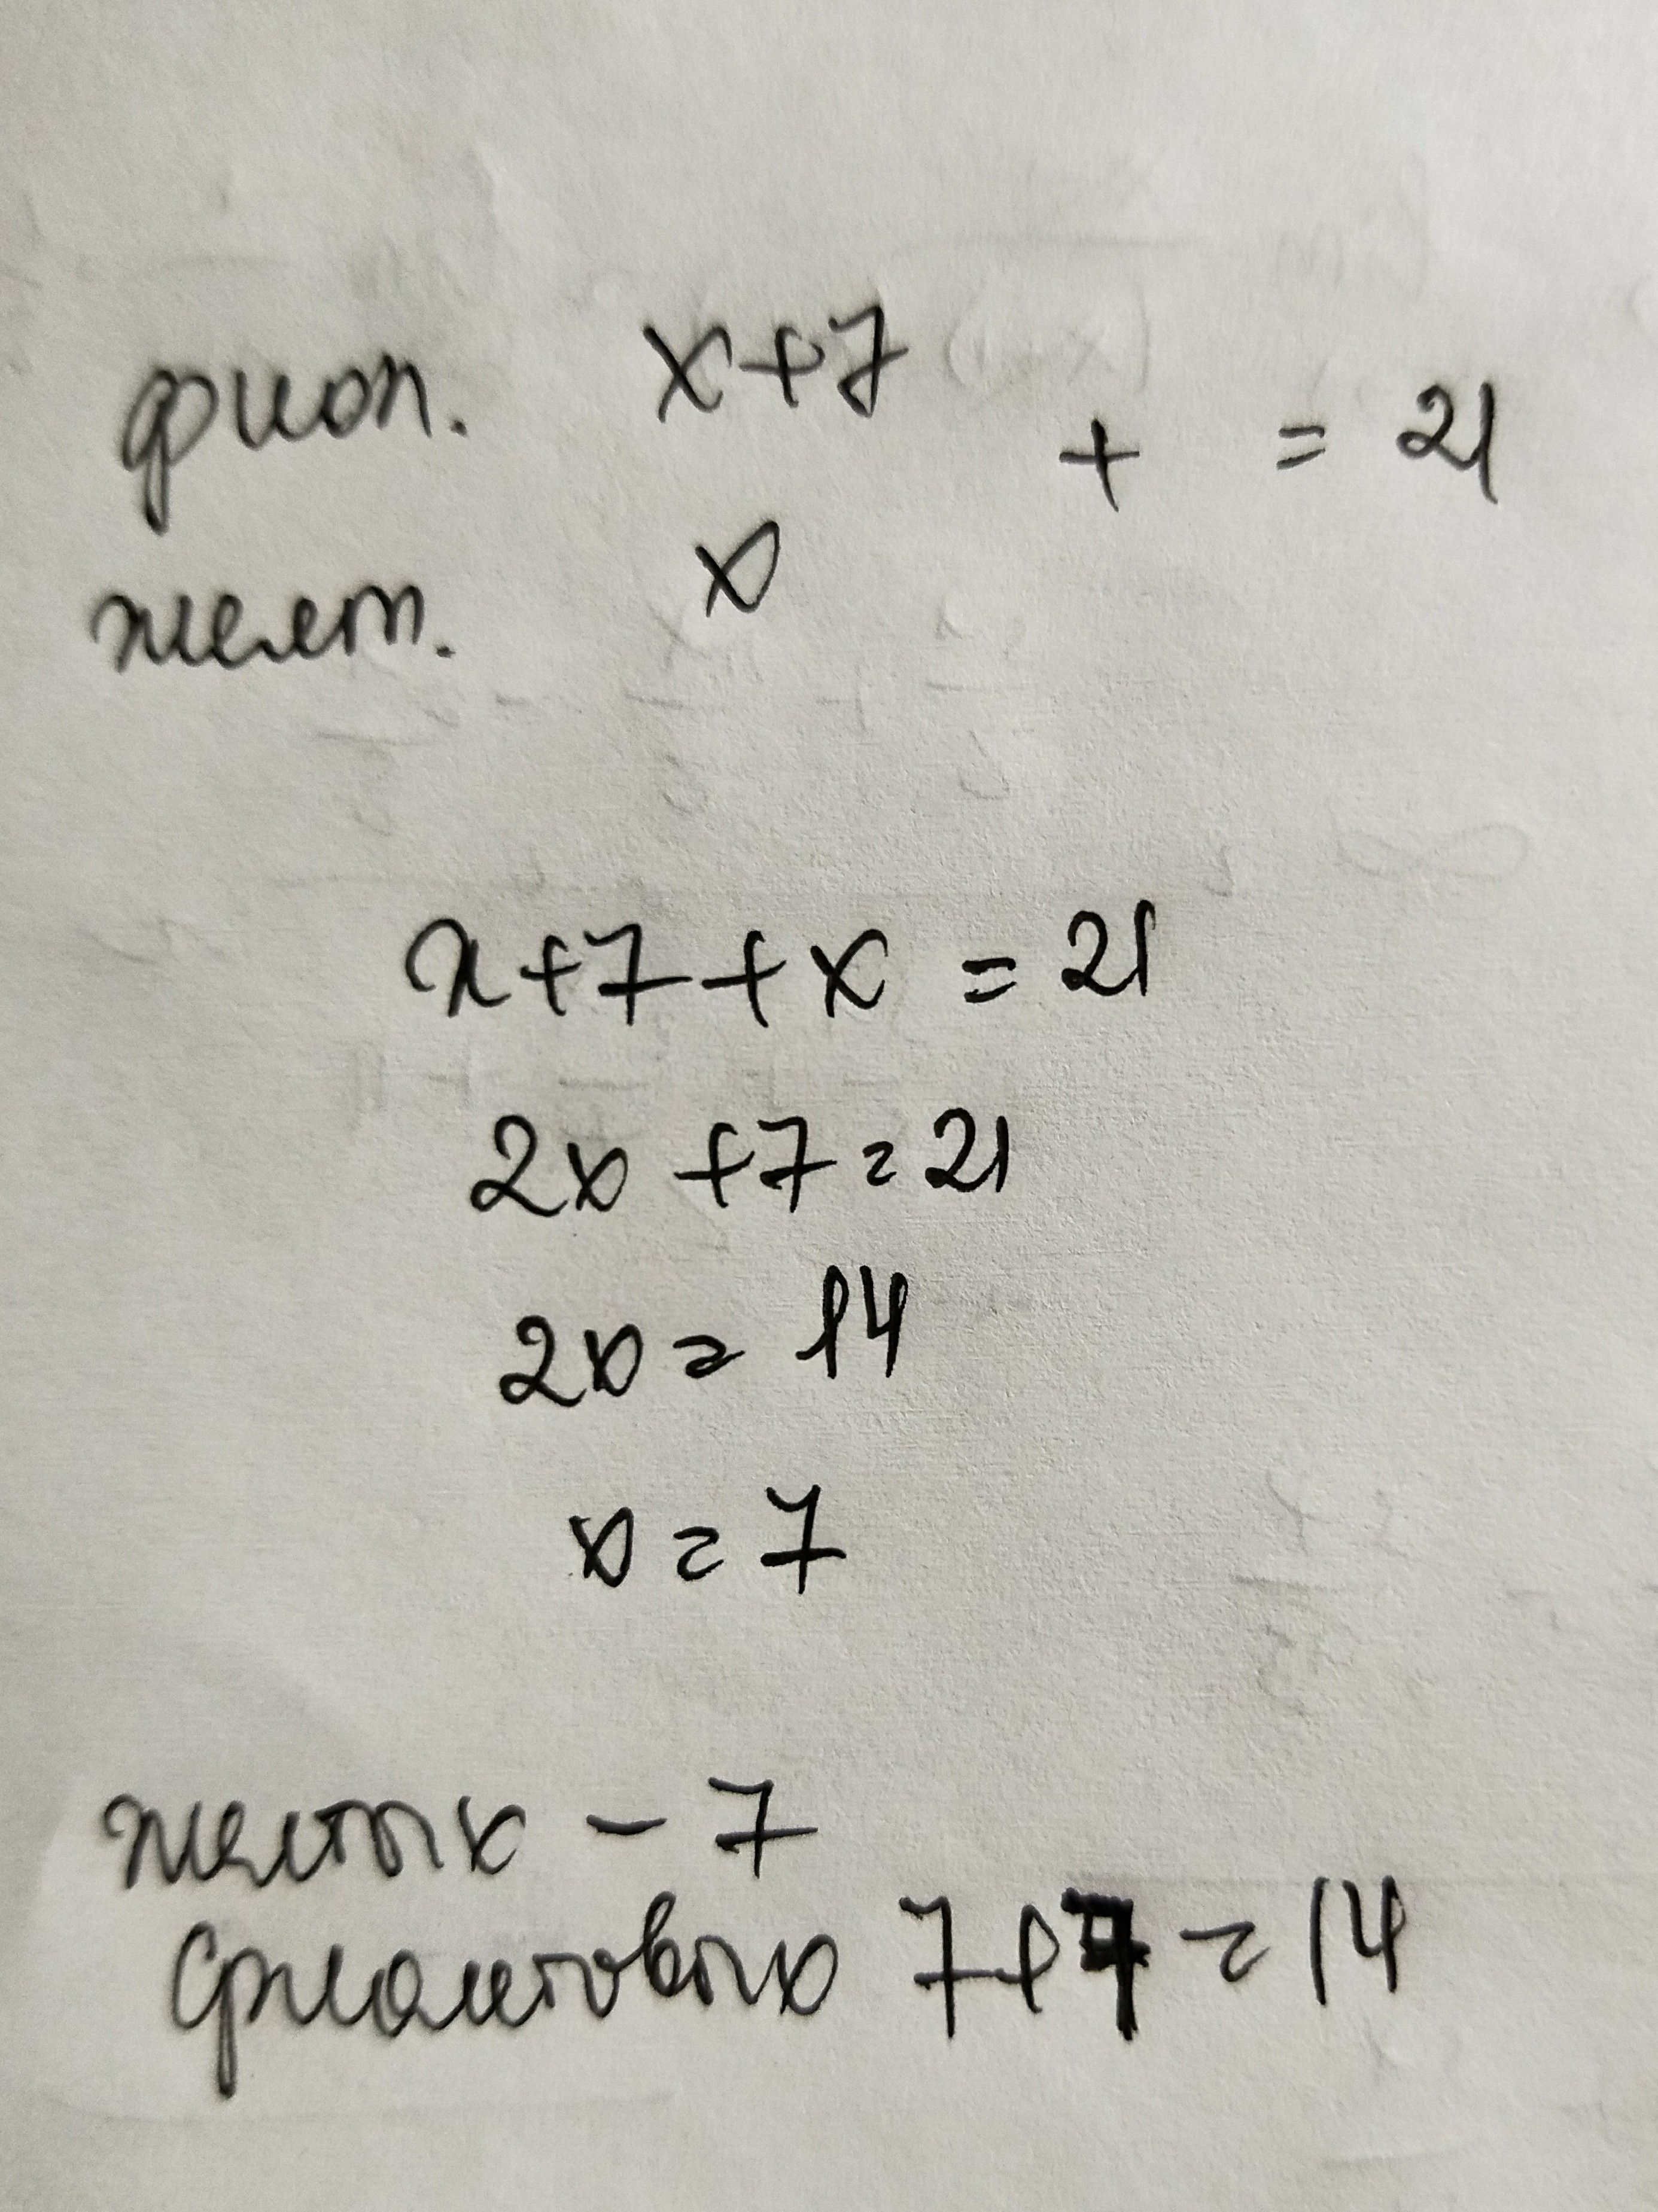 фиол. x+7
+ = 21
желт. x
x+7+x = 21
2x +7=21
2x= 14
x=7
желтых - 7
фиолетовых 7+7=14